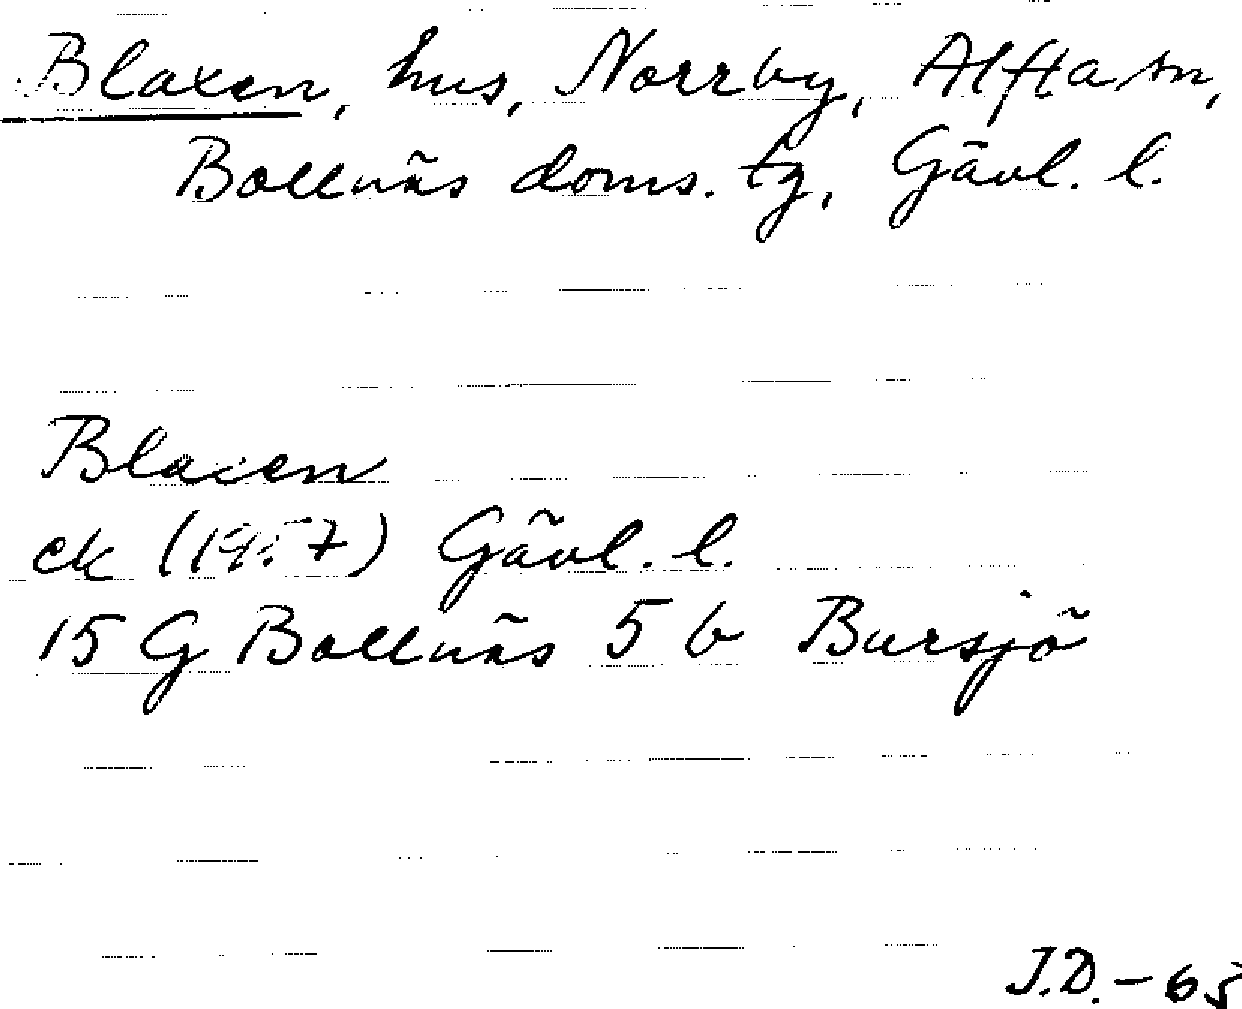 Blaxen, hus, Norrby, Alfta sn,
Bollnäs doms. tg, Gävl. l.
Blaxen
ek (1957) Gävl. l.
15 G Bollnäs 5 b Bursjö
J.D. - 65